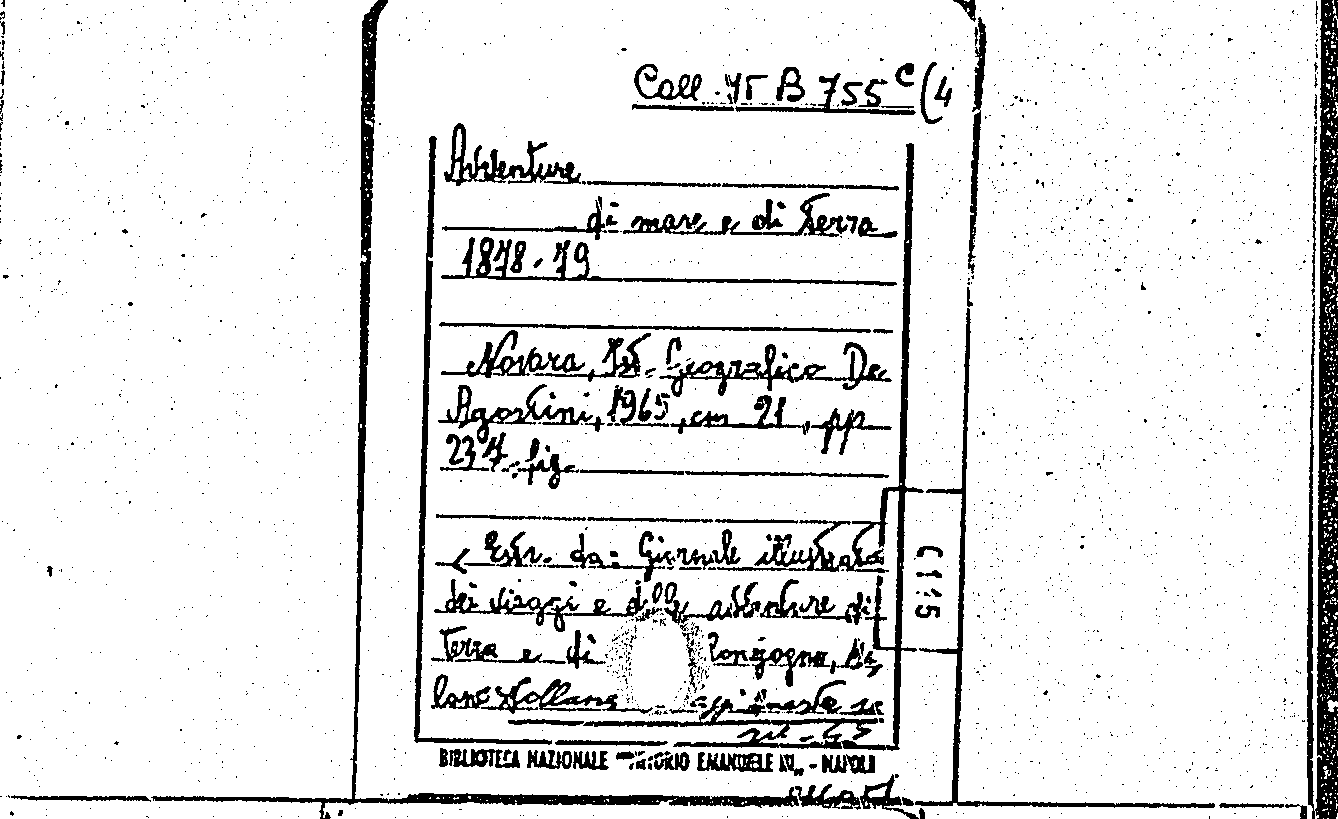 Coll. 75 B 755 c (4
Avventure
di mare e di terra
1878-79
Novara, Ist. Geografico De
Agostini, 1965, cm 21, pp
237. fig.
< Estr. da: Giornale illustrato
dei viaggi e delle avventure di
terra e di
C115
BIBLIOTECA NAZIONALE "VITTORIO EMANUELE III" - NAPOLI